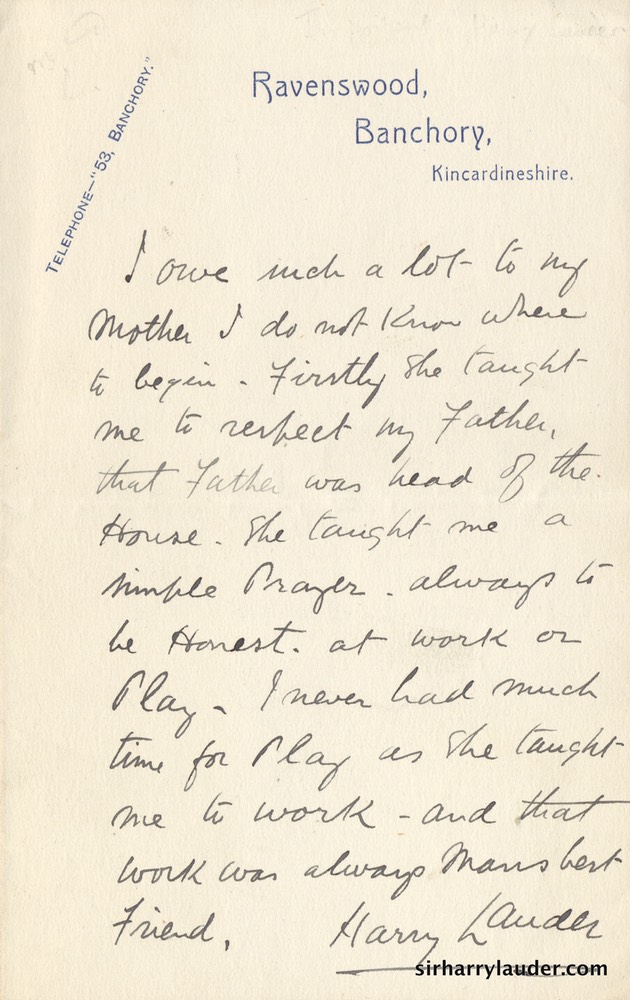 TELEPHONE—"53, BANCHORY."
Ravenswood,
Banchory,
Kincardineshire.
I owe such a lot to my
Mother I do not Know where
to begin - Firstly She taught
me to respect my Father,
that Father was head of the.
House. She taught me a
simple Prayer. always to
be Honest. at work or
Play - I never had much
time for Play as She taught
me to work - and that
work was always Mans best
Friend. Harry Lauder
sirharrylauder.com